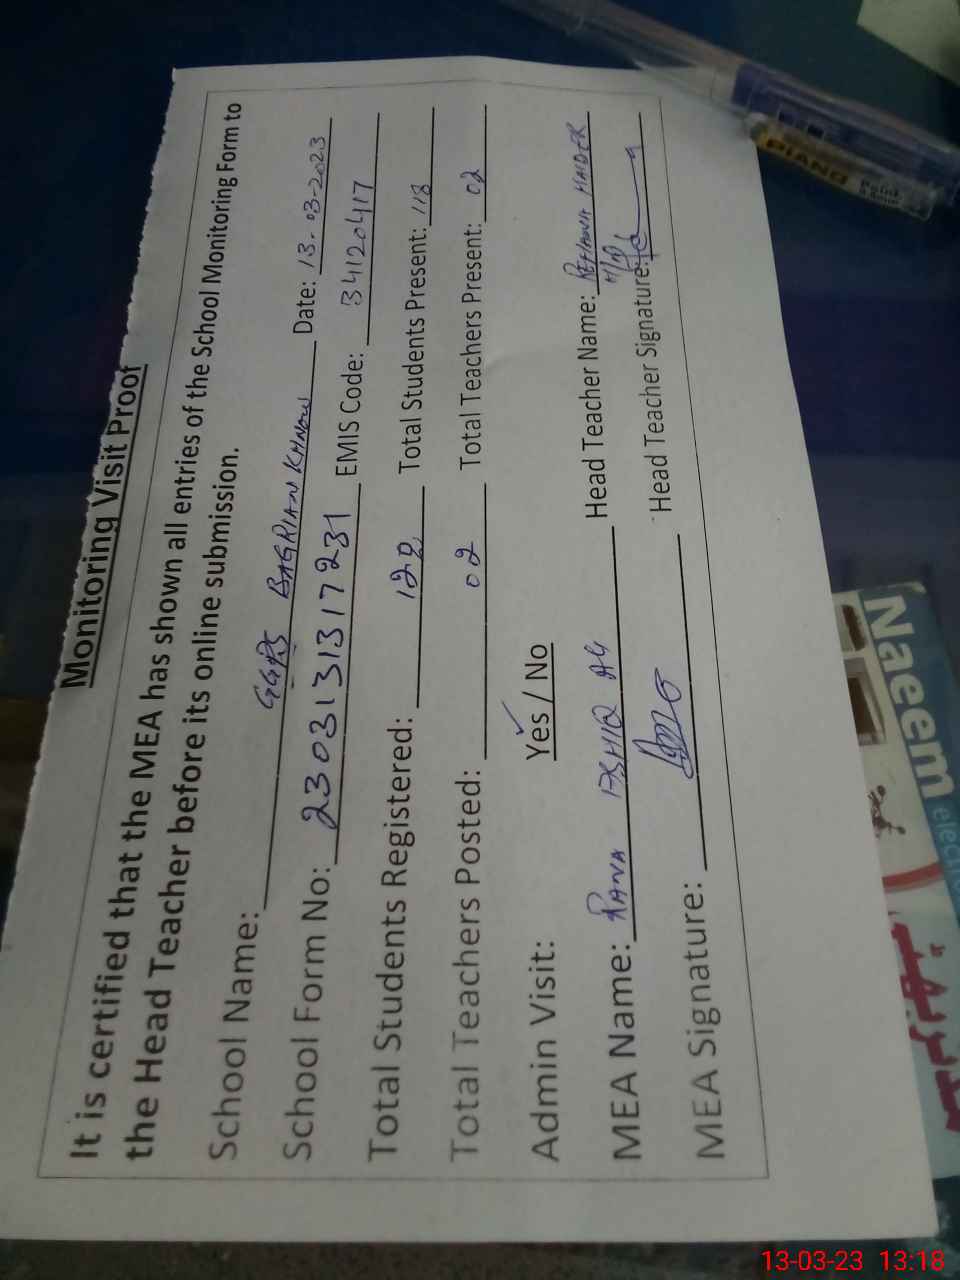 Monitoring Visit Proof
It is certified that the MEA has shown all entries of the School Monitoring Form to
the Head Teacher before its online submission.
School Name: GGPS BAGRIAN KHNOW Date: 13-03-2023
School Form No: 2303131317231 EMIS Code: 34120417
Total Students Registered: 128 Total Students Present: 118
Total Teachers Posted: 02 Total Teachers Present: 02
Admin Visit: Yes / No
MEA Name: RANA Head Teacher Name: REHANA HAIDER
MEA Signature: Head Teacher Signature:
PIANO
Point
Naeem
13-03-23 13:18